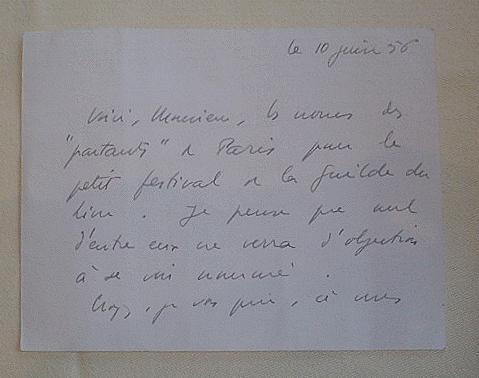 le 10 juin 56
Voici, Monsieur, les noms des
"partants" de Paris pour le
petit festival de la Guilde du
Livre. Je pense que nul
d'entre eux ne verra d'objection
à se voir nommé.
Croyez, je vous prie, à mes